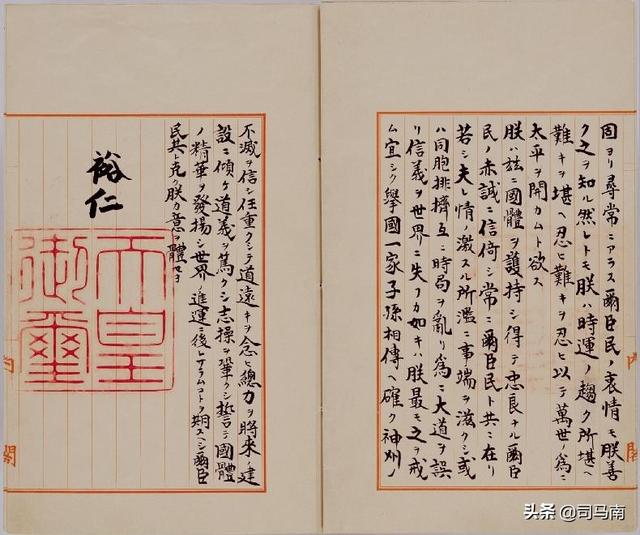 固ヨリ尋常ニアラス爾臣民ノ衷情モ朕善
ク之ヲ知ル然レトモ朕ハ時運ノ趨ク所堪ヘ
難キヲ堪ヘ忍ヒ難キヲ忍ヒ以テ萬世ノ爲ニ
太平ヲ開カムト欲ス
朕ハ茲ニ國體ヲ護持シ得テ忠良ナル爾臣
民ノ赤誠ニ信倚シ常ニ爾臣民ト共ニ在リ
若シ夫レ情ノ激スル所濫ニ事端ヲ滋クシ或
ハ同胞排擠互ニ時局ヲ亂リ爲ニ大道ヲ誤
リ信義ヲ世界ニ失フカ如キハ朕最モ之ヲ戒
ム宜シク擧國一家子孫相傳ヘ確ク神州ノ
不滅ヲ信シ任重クシテ道遠キヲ念ヒ總力ヲ將來ノ建
設ニ傾ケ道義ヲ篤クシ志操ヲ鞏クシ誓テ國體
ノ精華ヲ發揚シ世界ノ進運ニ後レサラムコトヲ期スヘシ爾臣
民其レ克ク朕カ意ヲ體セヨ
裕仁
天皇
御璽
头条 @司马南